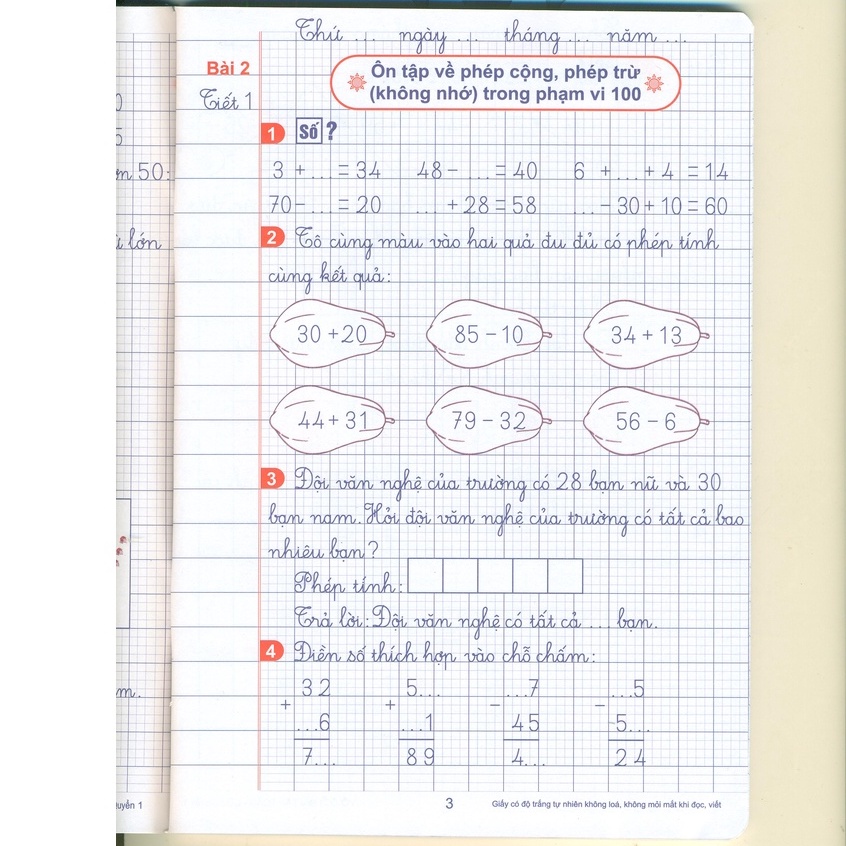 Thứ ... ngày ... tháng ... năm ...
Bài 2
Ôn tập về phép cộng, phép trừ
(không nhớ) trong phạm vi 100
Tiết 1
1 Số ?
3 + ... = 34 48 - ... = 40 6 + ... + 4 = 14
70 - ... = 20 ... + 28 = 58 ... - 30 + 10 = 60
2 Tô cùng màu vào hai quả đu đủ có phép tính
cùng kết quả:
30 + 20 85 - 10 34 + 13
44 + 31 79 - 32 56 - 6
3 Đội văn nghệ của trường có 28 bạn nữ và 30
bạn nam. Hỏi đội văn nghệ của trường có tất cả bao
nhiêu bạn?
Phép tính:
Trả lời: Đội văn nghệ có tất cả ... bạn.
4 Điền số thích hợp vào chỗ chấm:
32 5... ...7 ...5
+ + - -
...6 ...1 45 5...
7... 89 4... 24
3
Giấy có độ trắng tự nhiên không loá, không mỏi mắt khi đọc, viết
50:
lớn
m.
uyển 1